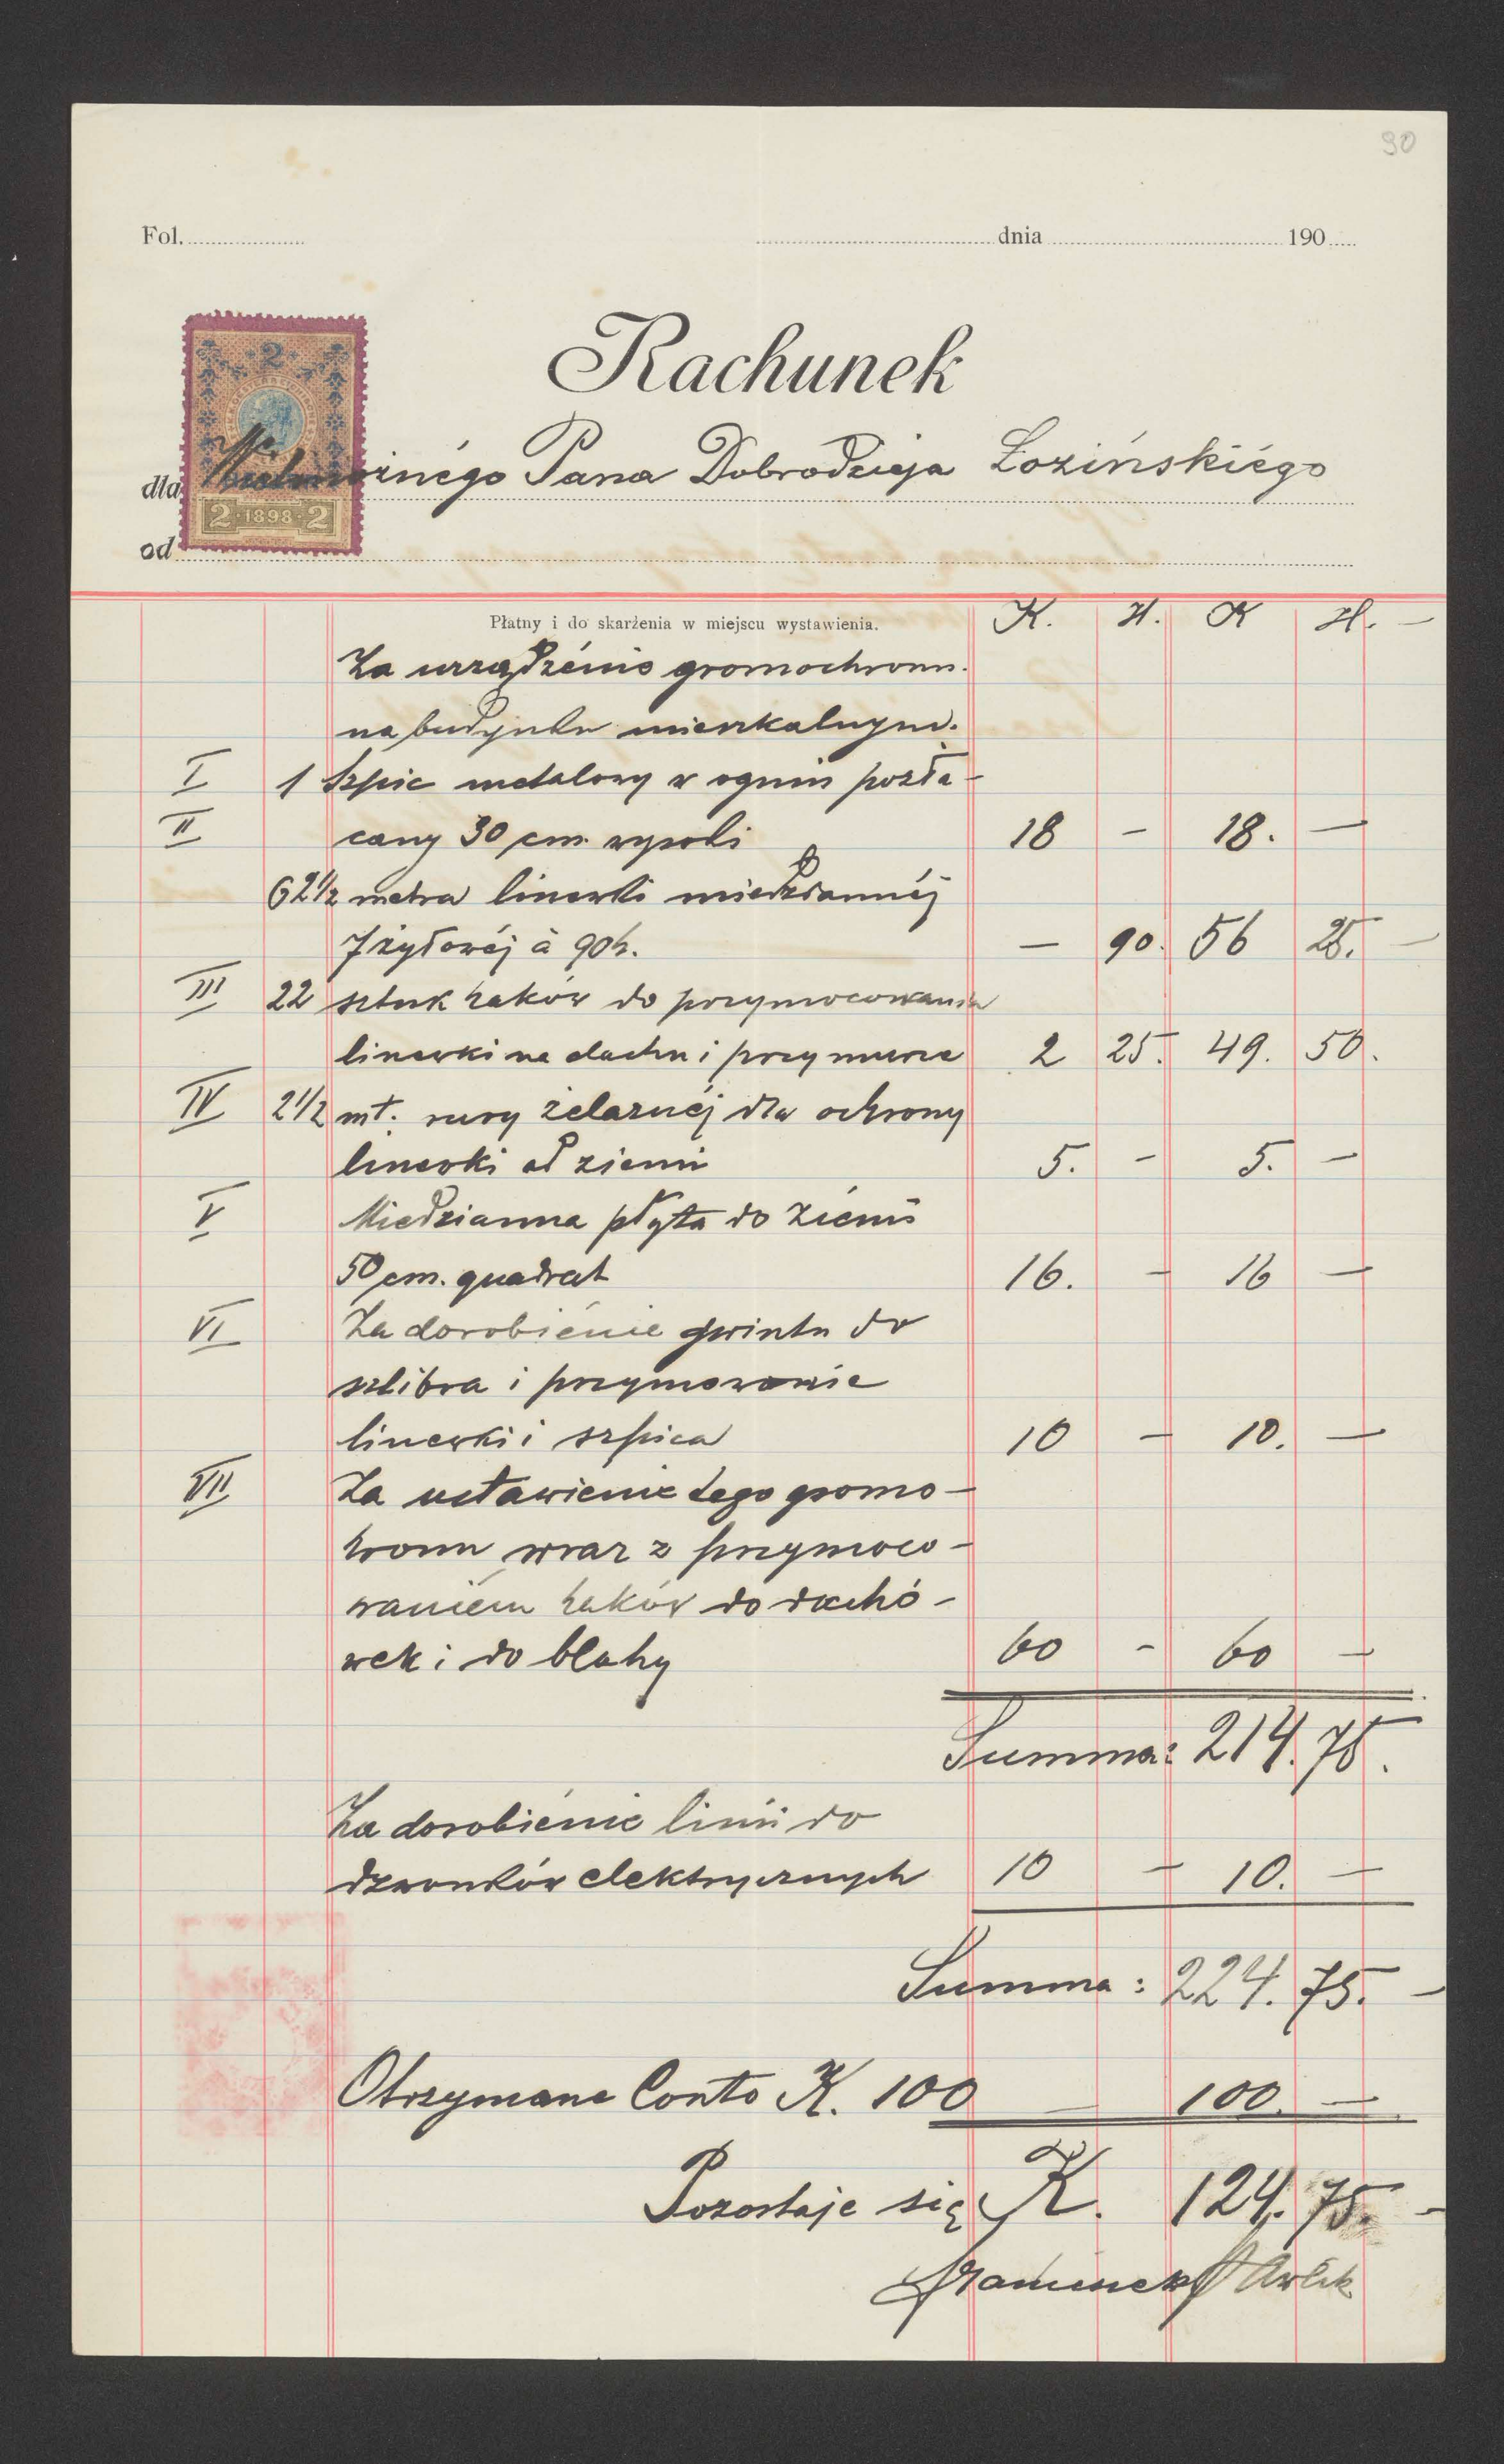 90
Fol. dnia 190
Rachunek
dla Wielmożnégo Pana Dobrodzieja Łozińskiégo
2
2 · 1898 · 2
od
Płatny i do skarżenia w miejscu wystawienia. K. H. K H. —
Za urządzénie gromochronu
na budynku mieszkalnym.
I 1 Szpic metalowy w ogniu pozła-
II cany 30 cm. wysoki 18 — 18. —
62 1/2 metra linewki miedziannéj
7 żyłowéj à 90 h. — 90. 56 25. —
III 22 sztuk haków do przymocowania
linewki na dachu i przy murze 2 25. 49. 50.
IV 2 1/2 mt. rury żelaznéj dla ochrony
linewki od ziemi 5. — 5. —
V Miedzianna płyta do ziémi
50 cm. quadrat 16. — 16 —
VI Za dorobiénie gwintu do
i
linewki i szpica 10 — 10. —
VII Za ustawienie tego gromo-
hronu wraz z przymoco-
waniém haków do dachó-
wek i do blahy 60 — 60 —
Summa: 214. 75.
Za dorobiénie linii do
dzwonków elektrycznych 10 — 10. —
Summa: 224. 75. —
Otrzymane Conto K. 100 — 100. —
Pozostaje się K. 124. 75. —